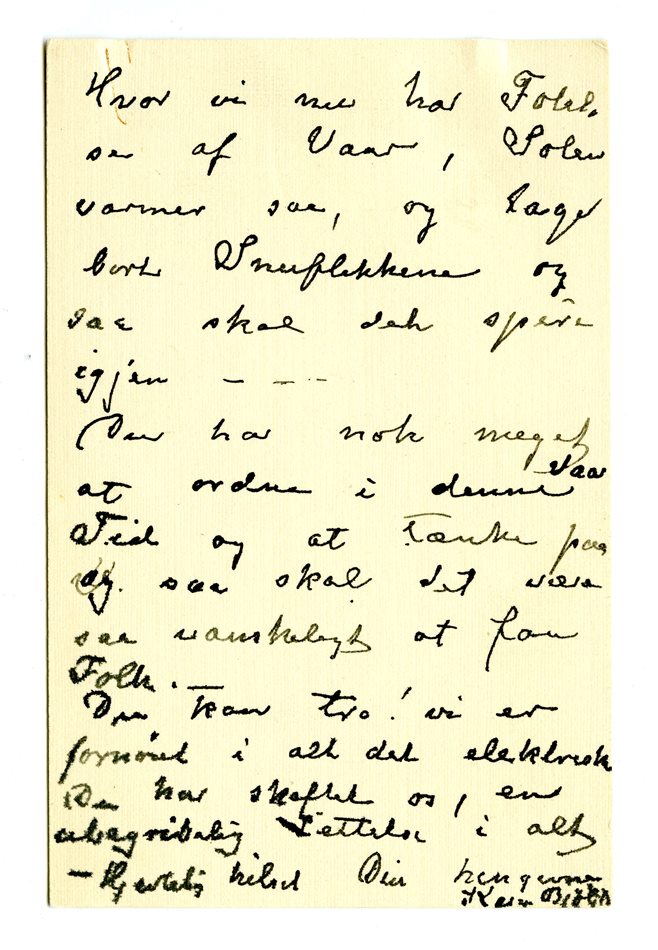 Hvor vi nu har Følel-
se af Vaar, Solen
varmer saa, og tager
bort Sneflekkene og
saa skal det spire
igjen - - - -
Du har nok meget
at ordne i denne Vaar
Tid og at tænke paa
og saa skal det være
saa vanskeligt at faa
Folk.
Du kan tro! vi er
fornøiet i alt det elektrisk
Du har skaffet os, en
ubegribelig Lettelse i alt
- Hjertelig hilset Din hengivne